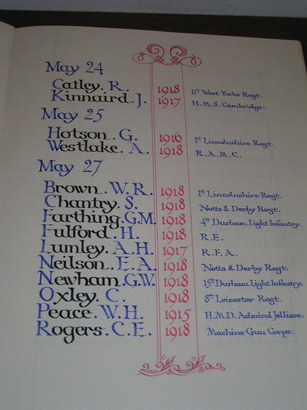 May 24
Catley. R. 1918 1st West Yorks Regt.
Kinnaird. J. 1917 H.M.S. Cambridge.
May 25
Hotson. G. 1916 1st Lincolnshire Regt.
Westlake. A. 1918 R.A.M.C.
May 27
Brown. W.R. 1918 1st Lincolnshire Regt.
Chantry. S. 1918 Notts & Derby Regt.
Farthing. G.M. 1918 4th Durham Light Infantry.
Fulford. H. 1918 R.E.
Lumley. A.H. 1917 R.F.A.
Neilson. E.A. 1918 Notts & Derby Regt.
Newham. G.W. 1918 15th Durham Light Infantry.
Oxley. C. 1918 8th Leicester Regt.
Peace. W.H. 1915 H.M.D. Admiral Jellicoe.
Rogers. C.E. 1918 Machine Gun Corps.